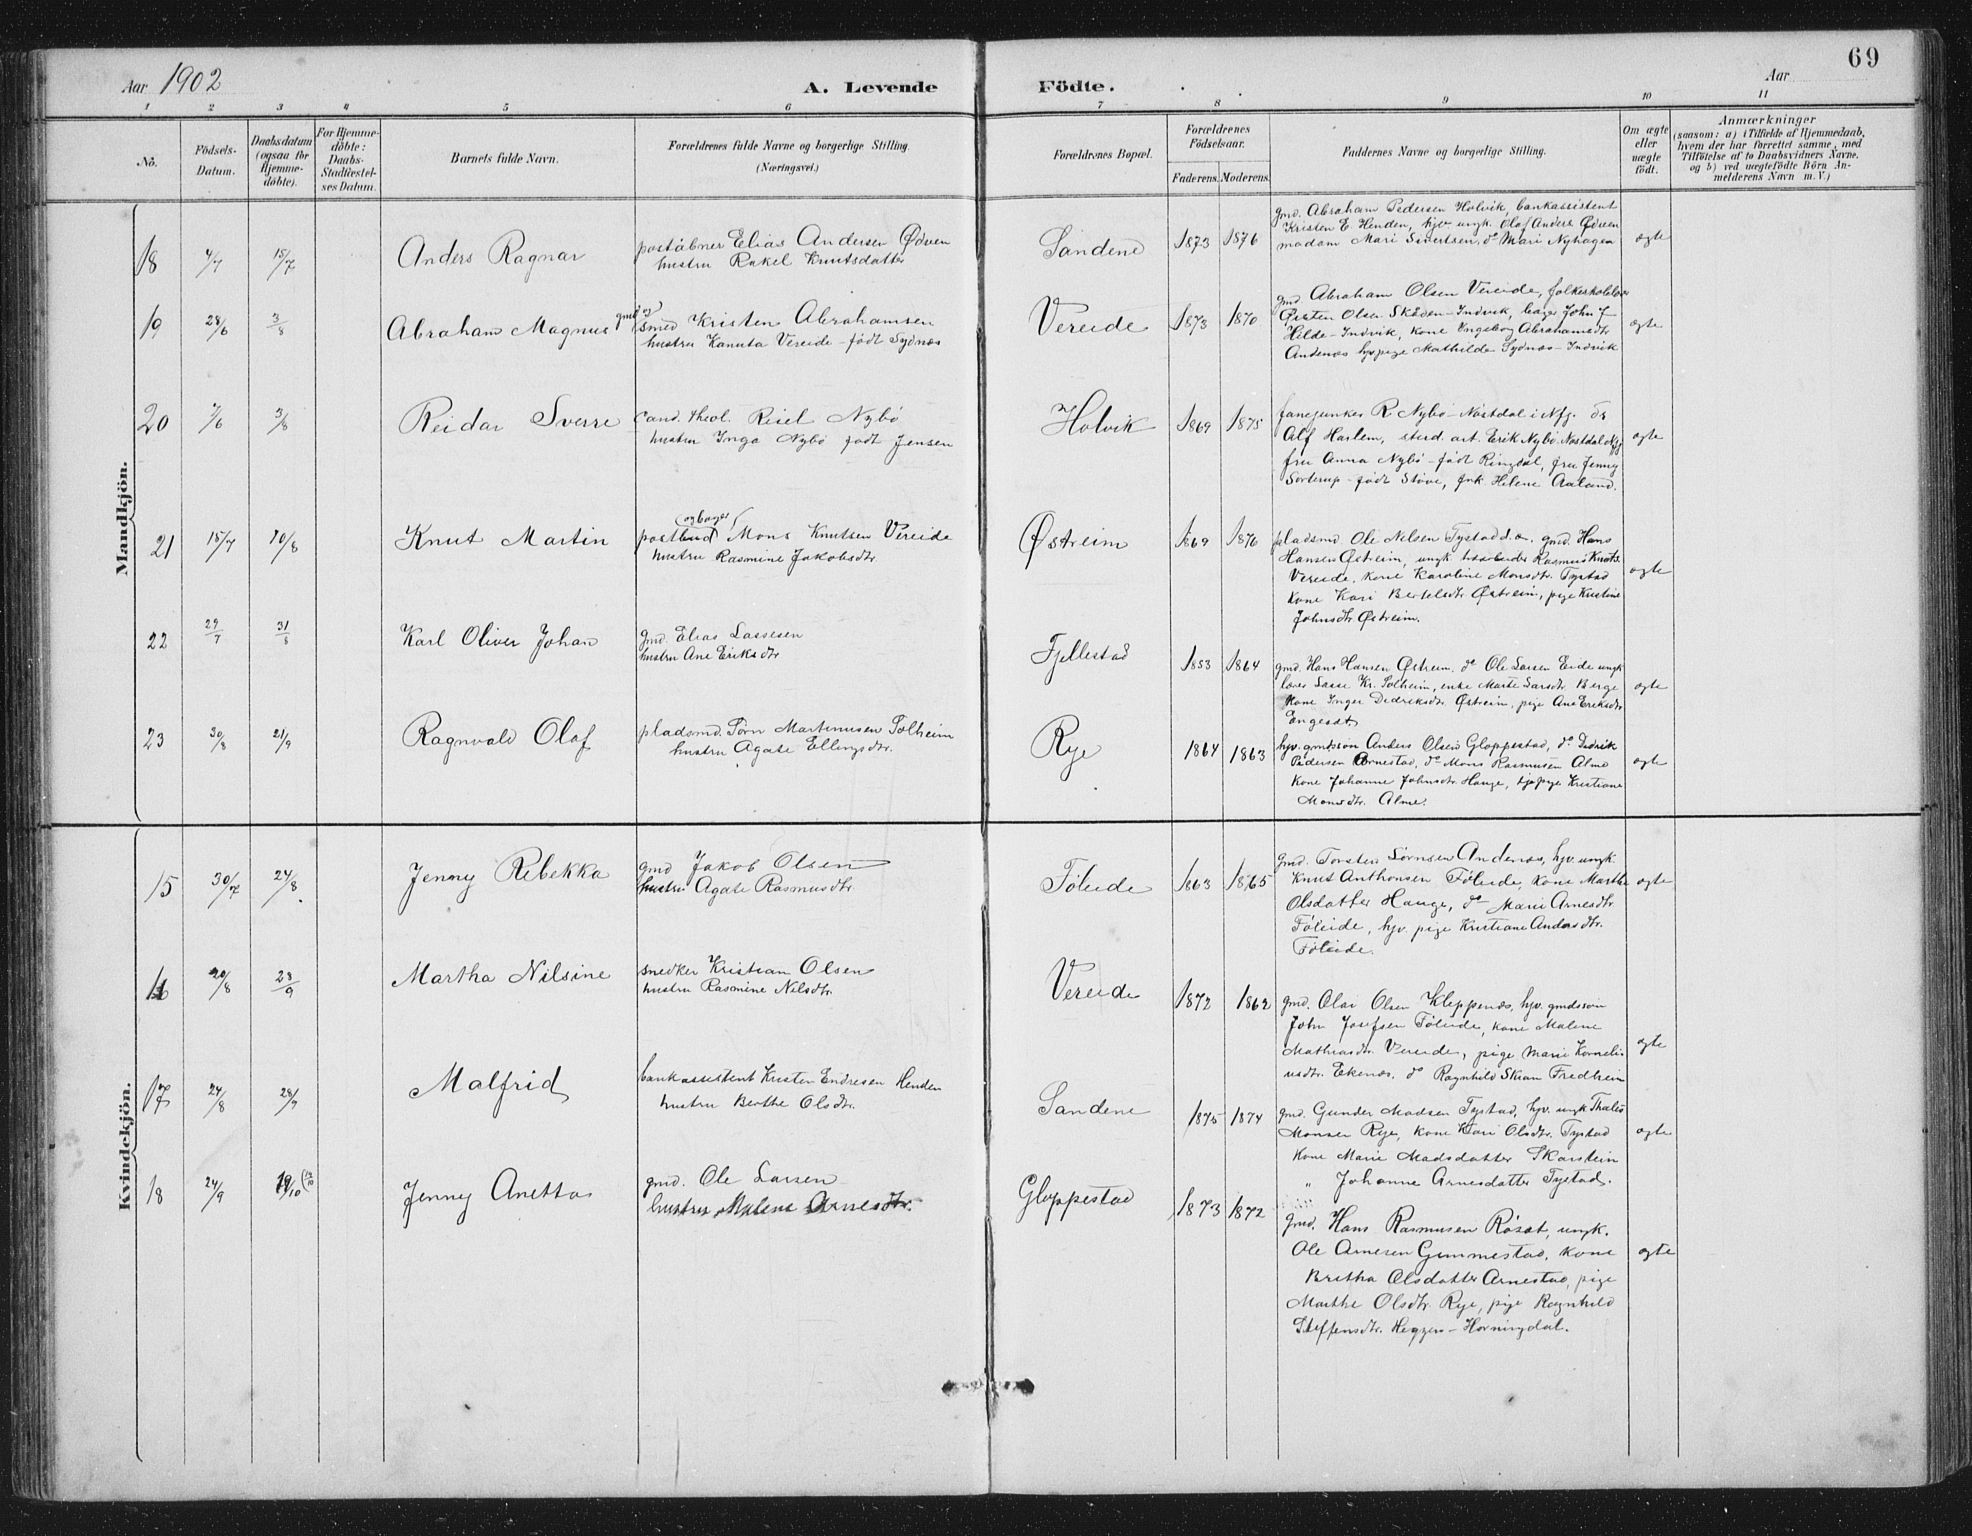 69
Aar 1902
A. Levende
Födte.
Aar
1 2 3 4 5 6 7 8 9 10 11
No.
Födsels-
Datum.
Daabsdatum
(ogsaa for
Hjemme-
döbte).
For Hjemme-
döbte:
Daabs-
Stadfæstel-
ses Datum.
Barnets fulde Navn.
Forældrenes fulde Navne og borgerlige Stilling
(Næringsvei.)
Forældrenes Bopæl.
Forældrenes
Födselsaar.
Faderens. Moderens.
Faddernes Navne og borgerlige Stilling.
Om ægte
eller
uægte
födt.
Anmærkninger
(saasom: a) i Tilfælde af Hjemmedaab,
hvem der har forrettet samme, med
Tilföielse af to Daabsvidners Navne,
og b) ved uægtefödte Börn An-
melderens Navn m. V.)
Mandkjön.
18 4/7 15/7 Anders Ragnar
postábner Elias Andersen Ødven
hustru Rakel Knutsdatter
Sandene 1873 1876
gmd. Abraham Pedersen Holvik, bankassistent
Kristen E Henden, hjv ungk. Olaf Anders Ødven
madam Mari Sivertsen, do Mari Nyhagen
ægte
19 28/6 3/8 Abraham Magnus
gmd og
smed Kristen Abrahamsen
hustru Kanuta Vereide - født Sydnæs
Vereide 1873 1870
gmd Abraham Olsen Vereide, folkeskolelærer
Gisten Olsen Skåden-Indvik, bager John J
Hilde-Indvik, kone Ingeborg Abrahamsdtr
Andenæs hjv pige Mathilde Sydnæs-Indvik
ægte
20 7/6 3/8 Reidar Sverre
cand. theol. Reiel Nybø
hustru Inga Nybø født Jensen
Holvik 1869 1875
fanejunker R Nybø Nåstdal i Nfj. dr
Alf Harlem, stud. art. Erik Nybø. Nåstdal Nfj
fru Anna Nybø - født Ringdal, fru Jenny
Sorterup - født Støve, frk. Helene Aaland.
ægte
21 15/7 10/8 Knut Martin
og bager
postbud Mons Knutsen Vereide
hustru Rasmine Jakobsdtr.
Østreim 1869 1876
pladsmd Ole Nelsen Tystad d.æ. gmd. Hans
Hansen Østreim, ungk Rasmus Knuts.
Vereide, kone Karoline Monsdtr. Tystad
kone Kari Bertelsdtr Østreim, pige Kristine
Johnsdtr. Østreim.
ægte
22 29/7 31/8 Karl Oliver Johan
gmd. Elias Lassesen
hustru Ane Eriksdtr
Fjellestad 1853 1864
gmd. Hans Hansen Østreim. do Ole Larsen Eide ungk
lærer Lasse Kr. Solheim, enke Marte Larsdtr. Berge
kone Inger Didriksdtr. Østreim, pige Ane Eriksdtr
Engesæt
ægte
23 30/8 21/9 Ragnvald Olaf
pladsmd. Sørn Martinusen Solheim
hustru Agate Ellingsdtr.
Rye 1864 1863
hjv. gmdssøn Anders Olsen Gloppestad, do Didrik
Pedersen Arnestad, do Mons Rasmusen Alme
kone Johanne Johnsdtr. Hauge, pige Kristiane
Monsdtr. Alme.
ægte
Kvindekjön.
15 30/7 24/8 Jenny Rebekka
gmd Jakob Olsen
hustru Agate Rasmusdtr.
Føleide 1863 1865
gmd. Torsten Sørnsen Andenæs, hjv. ungk.
Knut Anthonsen Føleide, kone Martha
Olsdatter Hauge, do Marie Arnesdtr.
Føleide, hjv. pige Kristiane Andersdtr.
Føleide.
ægte
16 20/8 28/9 Martha Nilsine
snedker Kristian Olsen
hustru Rasmine Nilsdtr.
Vereide 1872 1862
gmd. Olai Olsen Kleppenæs, hjv. gmdssøn
John Josefsen Føleide, kone Malene
Mathiasdtr. Vereide, pige Marie Korneli-
usdtr. Ekenæs, do Ragnhild Skram Fredheim
ægte
17 24/8 28/9 Malfrid
bankassistent Kristen Endresen Henden
hustru Berthe Olsdtr.
Sandene 1875 1874
gmd. Gunder Madsen Tystad, hjv. ungk Thales
Monsen Rye, kone Kari Olsdtr. Tystad
kone Marie Madsdatter Skarstein
" Johanne Arnesdatter Tystad.
ægte
18 24/9 19/10 Jenny Anetta
gmd. Ole Larsen
hustru Malene Arnesdtr.
Gloppestad 1873 1872
gmd. Hans Rasmusen Røsæt, ungk.
Ole Arnesen Gimmestad, kone
Britha Olsdatter Arnestad, pige
Marthe Olsdtr. Rye, pige Ragnhild
Steffensdtr. Heggen - Hornindal.
ægte